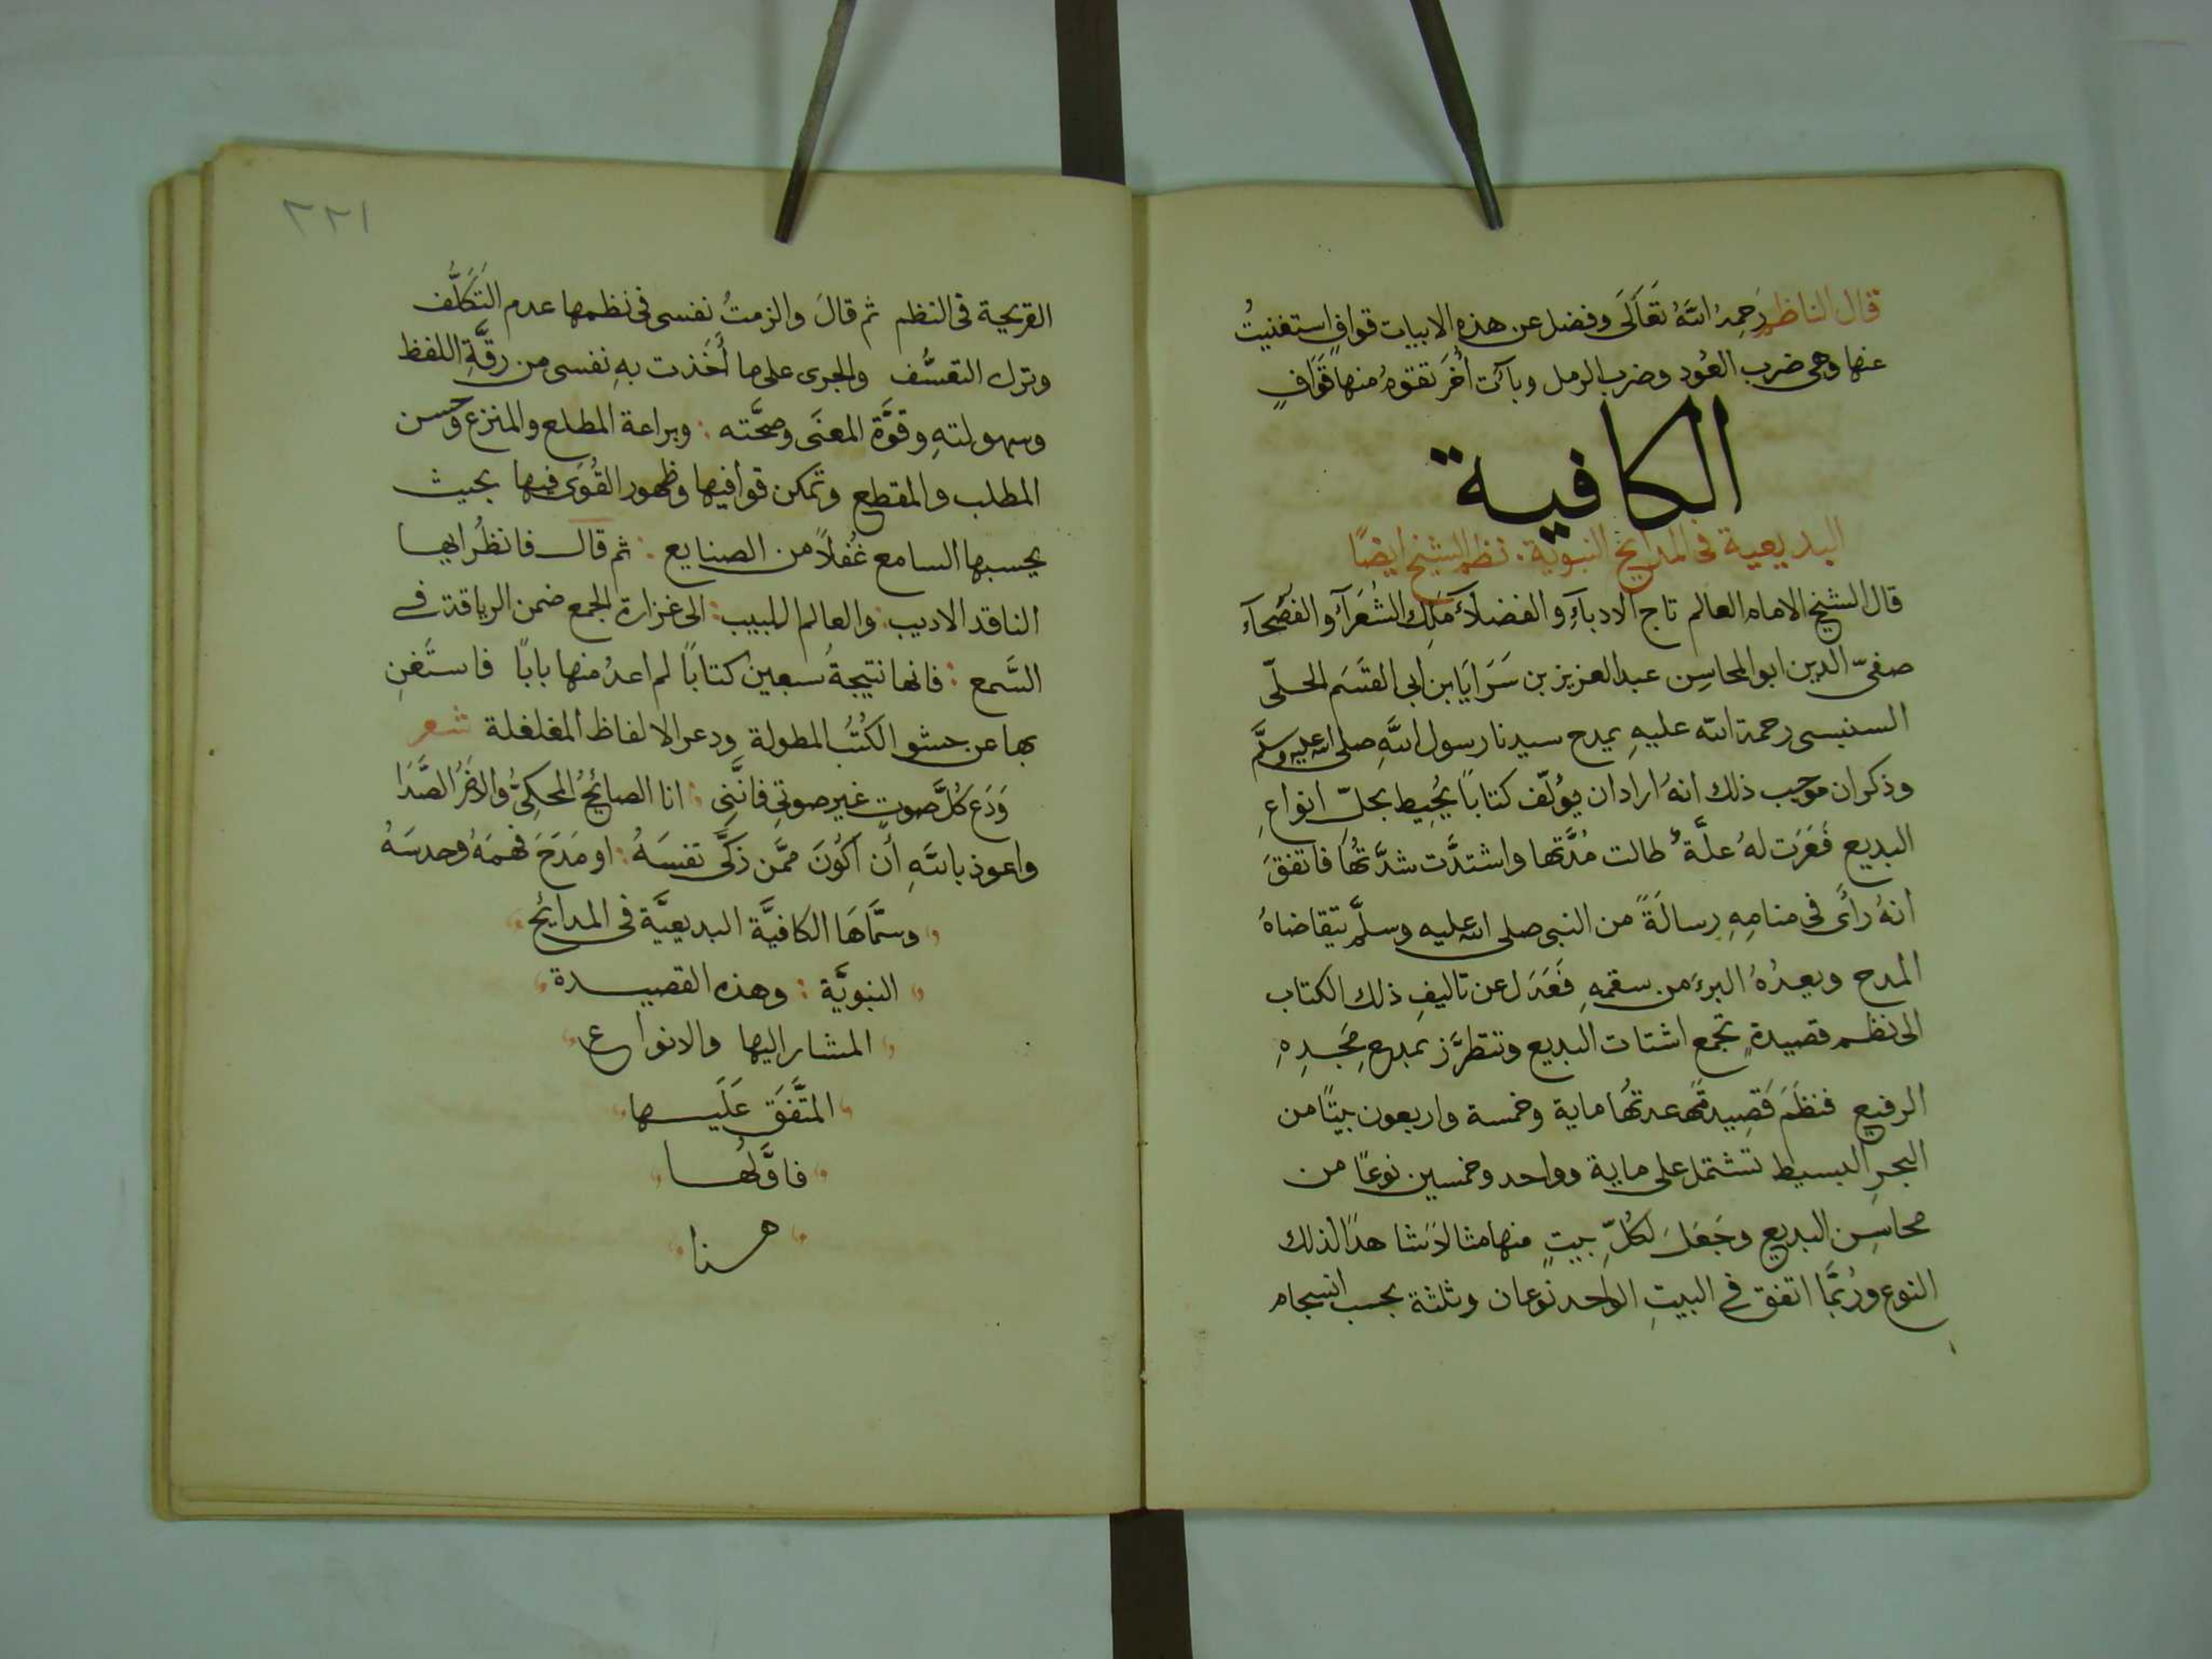 قال الناظم رَحِمهُ اللهُ تَعَالَى وفضل عن هذه الابيات قوافٍ استغنيتُ
عنها وهى ضرب العُود وضرب الرمل وبآت أُخَر تقوم منها قَوَافٍ
الكافية
البديعية فى المدايح النبوية. نظم الشيخ ايضًا
قال الشيخ الامام العالم تاج الادباءِ والفضلآء مَلِك الشُعَرآء والفُصَحآء
صفىّ الدين ابو المحاسِن عبد العزيز بن سَرَايَا بن ابى القسَم الحلّى
السنبسى رحمة الله عليهِ يمدح سيدنا رسول اللهِ صلى الله عليه وسلَّم
وذكر ان موجب ذلك انهُ اراد ان يؤلّف كتابًا يُحِيط بجلّ انواعِ
البديع فَعَرَت لهُ علَّةٌ طالت مُدَّتها واشتدَّت شدَّتُها فاتفقَ
انهُ رأى فى منامِهِ رسالَةً من النبى صلى الله عليه وسلَّم يتقاضاهُ
المدح ويعِدُهُ البرءَ من سقمهِ فَعَدَل عن تاليفِ ذلك الكتاب
الى نظم قصيدةٍ تجمع اشتات البديع وتتطرَّز بمدح مَجدِهِ
الرفيع فنظَمَ قَصِيدةً عدتُها ماية وخمسة واربعون بيتًا من
البحرِ البسيط تشتمل على ماية وواحد وخمسين نوعًا من
محاسِن البديع وجَعَلَ لكُلِّ بيتٍ منها مثالاً شاهدًا لذلك
النوع ورُبَّمَا اتفق فى البيتِ الواحد نوعان وثلثة بحسب انسجام
٢٢١
القريحة فى النظم ثم قالَ والزمتُ نفسى فى نظمها عدم التَكَلُّف
وترك التعسُّف والجرى على ما أَخَذت بهِ نفسى من رقَّةِ اللفظ
وسهولتهِ وقوَّة المعنَى وصحَّته : وبراعة المطلع والمنزع وحسن
المطلب والمقطع وتمكن قوافيها وظهور القُوَى فيها بحيث
يحسبها السامع غُفلاً من الصنايع : ثم قال فانظُر ايها
الناقد الاديب : والعالم اللبيب : الى غزارة الجمع ضمن الرياقة فى
السَّمع : فانها نتيجةُ سبعين كتابًا لم اعدُ منها بابًا فاستَغنِ
بها عن حشو الكُتُب المطولة ودعر الالفاظ المغلغلة شعر
وَدَع كُلَّ صوتٍ غير صوتى فانَّنى : انا الصائحُ المحكىُّ والاخَرُ الصَّدَا
واعوذ باللهِ أن أكُونَ ممَّن زكَّى نفسَهُ : او مَدَحَ فهمَهُ وحدسَهُ
وسمَّاهَا الكافيَّة البديعيَّة فى المدايح
النبويَّة : وهذه القصيدة
المشار اليها والانواع
المتَّفَق عَلَيها
فاوَّلُها
هنا